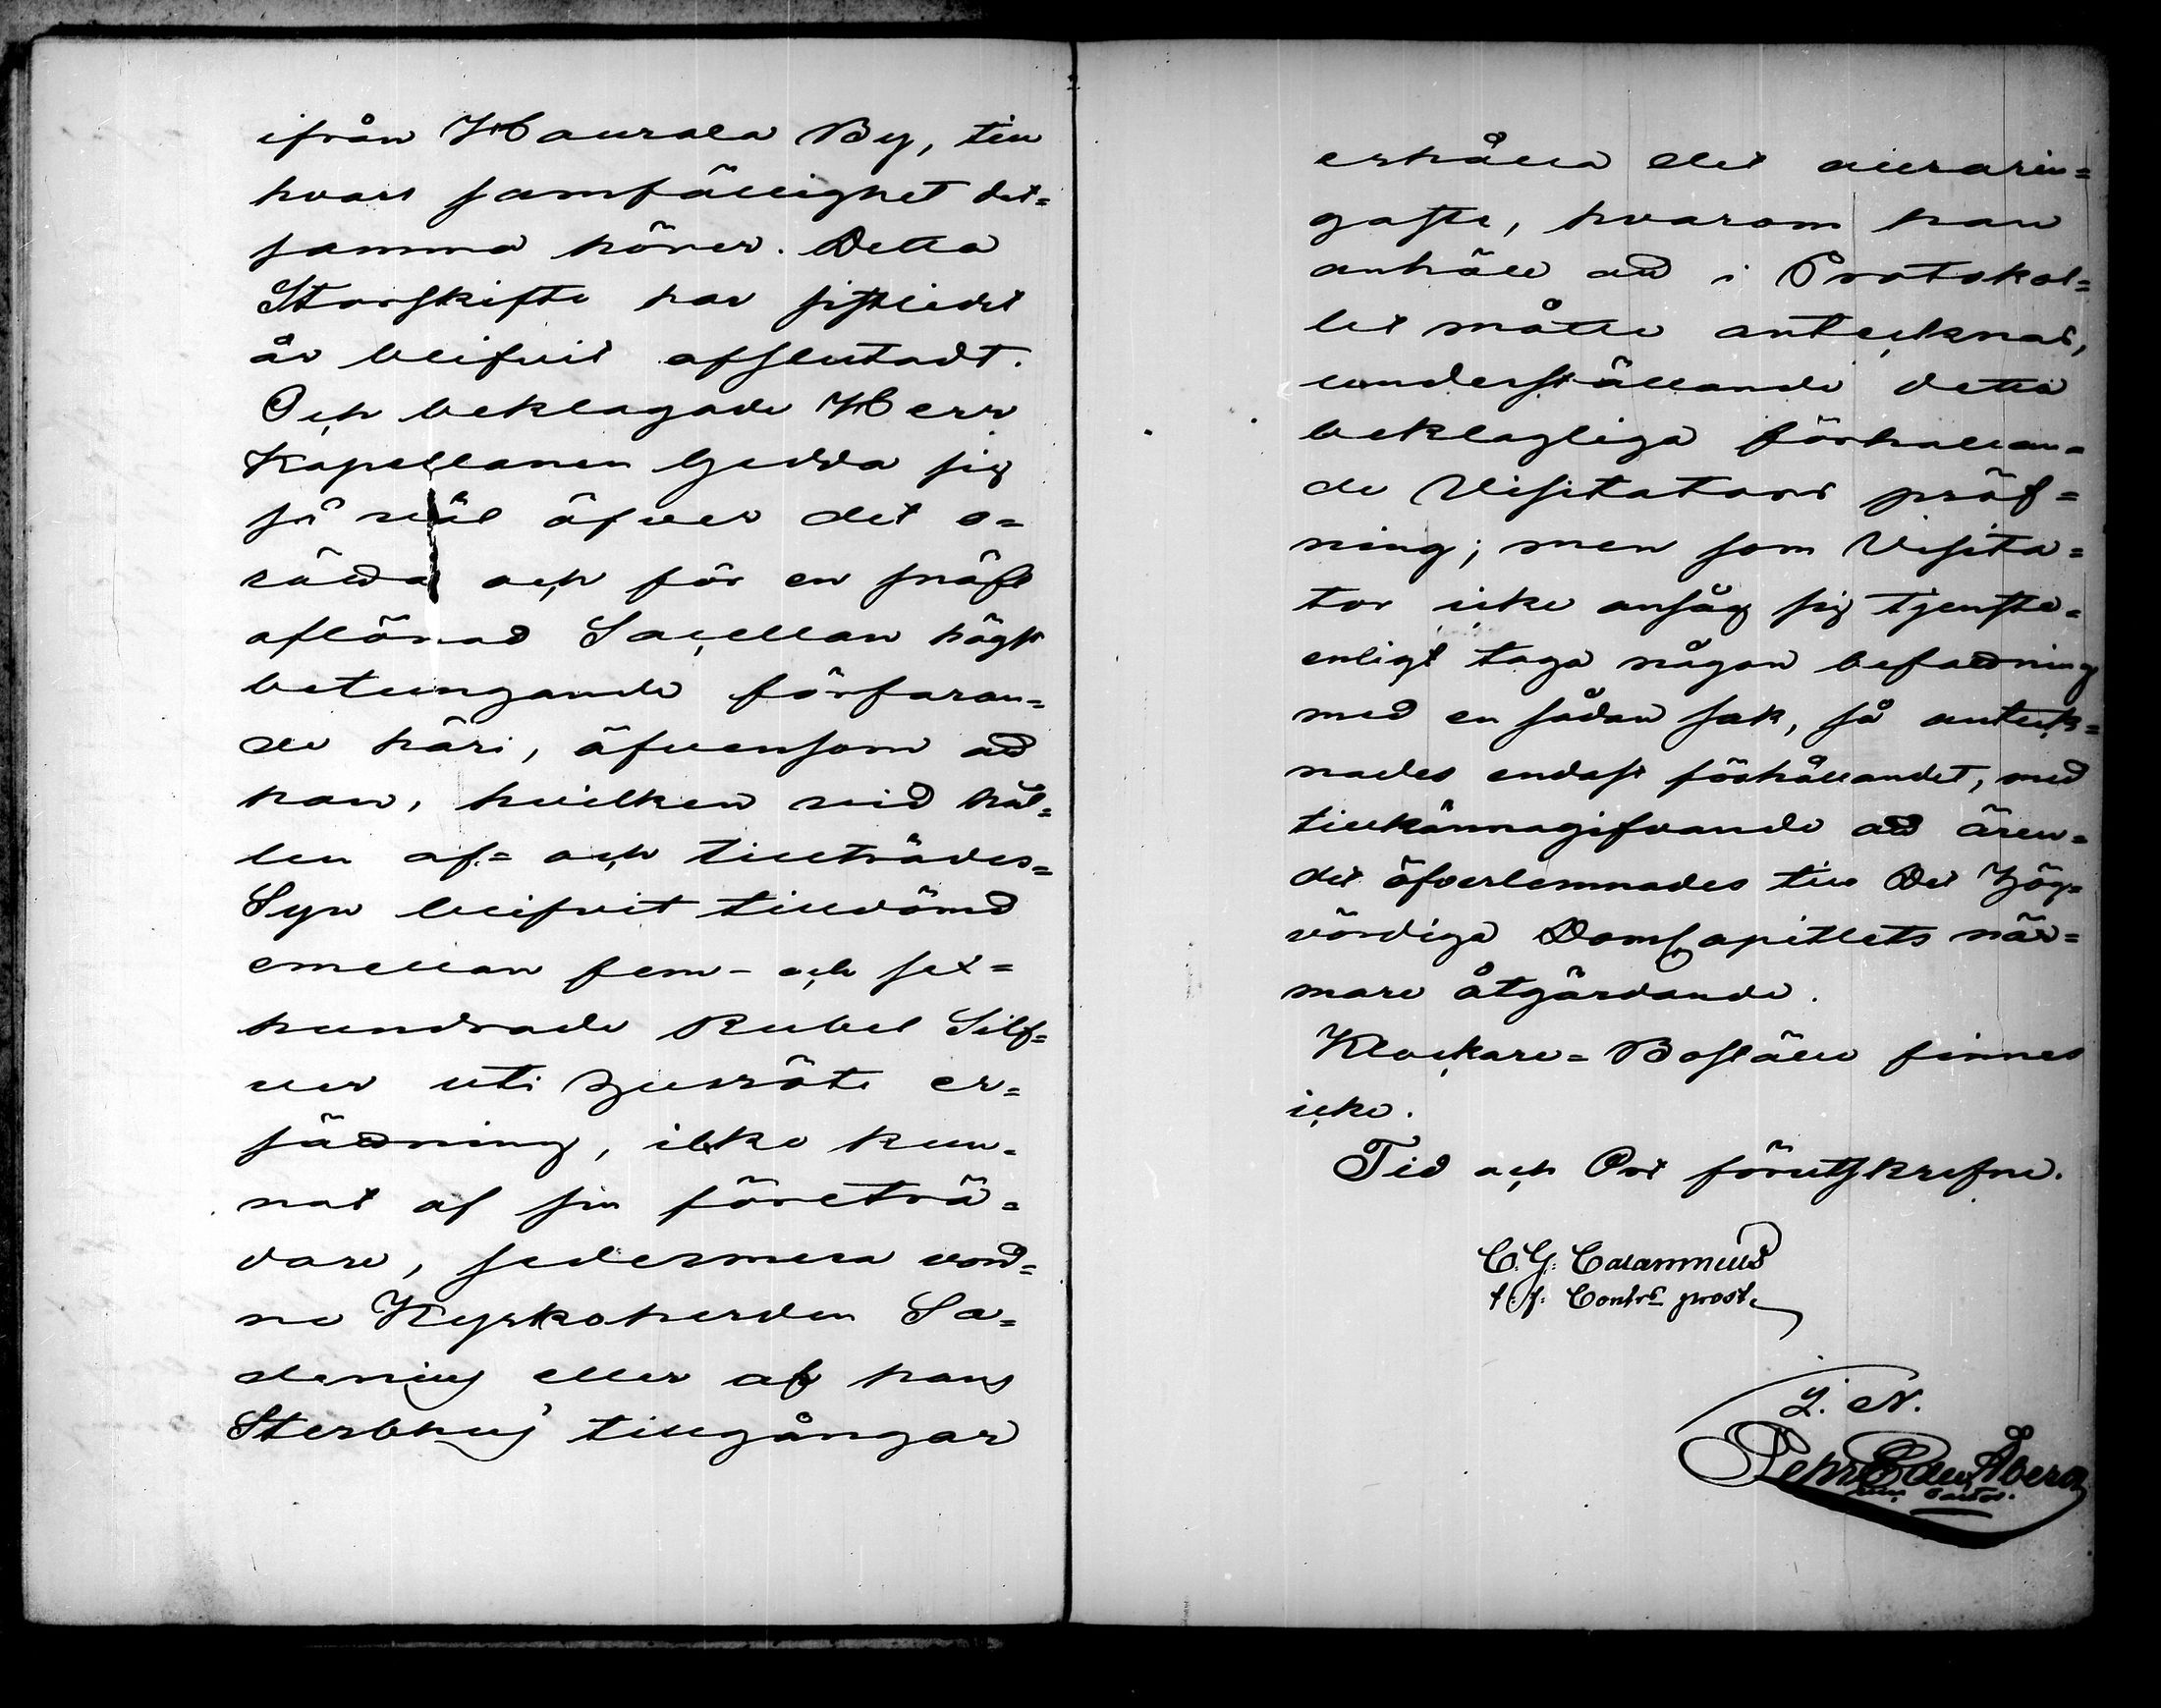 ifrån Haurala By, till
hvars samfällighet det=
samma hörer. Detta
Storskifte har sistledit
år blifvit afslutadt.
Och beklagade Herr
Kapellanen Gedda sig
så väl öfver det o=
rädda och för en knäft
aflönad Sacellan högst
betungande förfaran=
de häri, äfvensom ad
han, hvilken vid hål=
len af= och tillträdes=
Syn blifvit tilldömd
emellan fem- och sex=
hundrade Rubel Silf=
ver uti husröte er=
sädning, icke kun=
nat af sin företrä=
dare, sedermera vord=
ne Kyrkoherden Sa=
denius eller af hans
Sterbhus' tillgångar
erhålla det aldrarin=
gaste, hvarom han
anhöll ad i Protokol=
let måtte antecknas,
underställande detta
beklagliga förhallan=
de Visitators pröf=
ning; men som Visita=
tor icke ansåg sig tjenste=
enligt taga någon befadning
med en sådan sak, så anteck=
nades endast förhållandet, med
tillkännagifvande ad ären=
det öfverlemnades till Det Hög=
vördiga DomCapitlets när=
mare åtgärdande.
Klockare=Boställe finnes
icke.
Tid och Ort förutskrefne.
C. G. Calamnius
t. f. Contrs prost